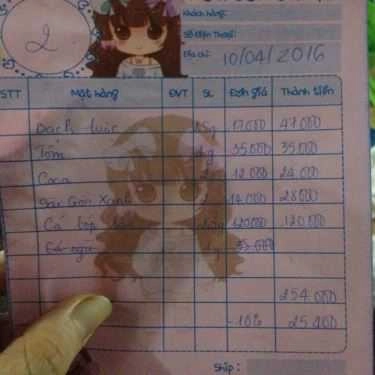 2
Khách hàng:
Số Điện Thoại:
Địa chỉ: 10/04/2016
STT Mặt hàng ĐVT SL Đơn giá Thành tiền
luộc 17.000 47.000
Tôm 35.000 35.000
Coca 2 12.000 24.000
Sài Gòn Xanh 2 14.000 28.000
Cá 120.000 120.000
254.000
-10% 25.400
Ship: